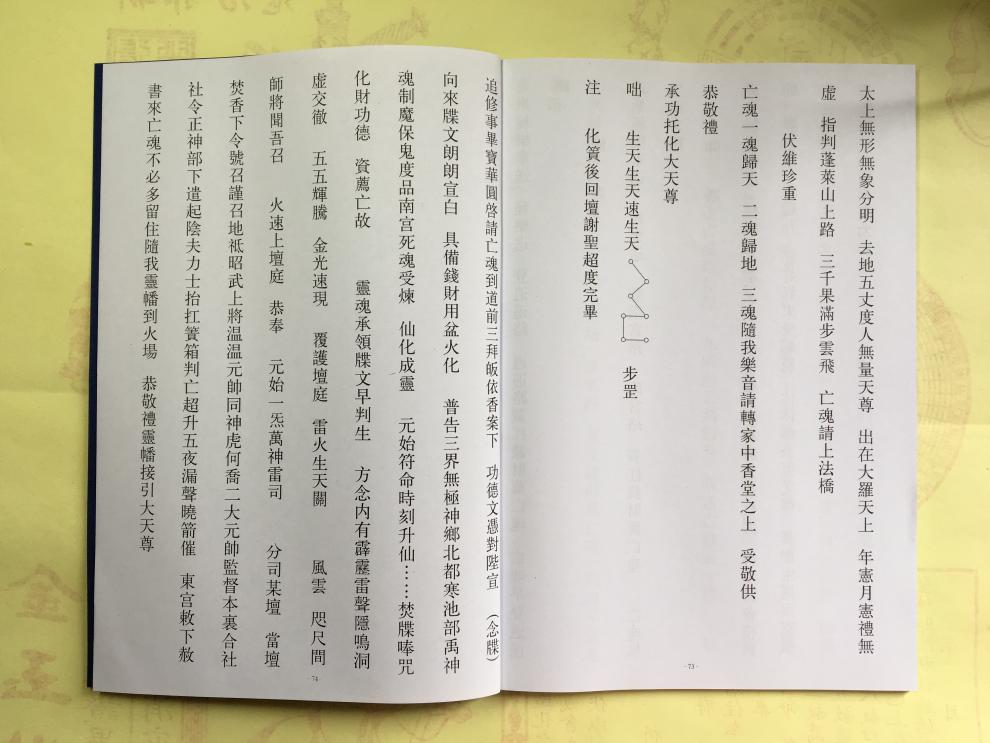 太上無形無象分明　去地五丈度人無量天尊　出在大羅天上　年憲月憲禮無
虛　指判蓬萊山上路　三千果滿步雲飛　亡魂請上法橋
伏維珍重
亡魂一魂歸天　二魂歸地　三魂隨我樂音請轉家中香堂之上　受敬供
恭敬禮
承功托化大天尊
咄　生天生天速生天　步罡
注　化簧後回壇謝聖超度完畢
-73-
追修事畢寶華圓啓請亡魂到道前三拜皈依香案下　功德文憑對陛宣　（念牒）
向來牒文朗朗宣白　具備錢財用盆火化　普告三界無極神鄉北都寒池部禹神
魂制魔保鬼度品南宮死魂受煉　仙化成靈　元始符命時刻升仙……焚牒唪咒
化財功德　資薦亡故　靈魂承領牒文早判生　方念内有霹靂雷聲隱鳴洞
虛交徹　五五輝騰　金光速現　覆護壇庭　雷火生天關　風雲　咫尺間
師將聞吾召　火速上壇庭　恭奉　元始一炁萬神雷司　分司某壇　當壇
焚香下令號召謹召地祇昭武上將温温元帥同神虎何喬二大元帥監督本裏合社
社令正神部下遣起陰夫力士抬扛簧箱判亡超升五夜漏聲曉箭催　東宫敕下赦
書來亡魂不必多留住隨我靈幡到火場　恭敬禮靈幡接引大天尊
-74-